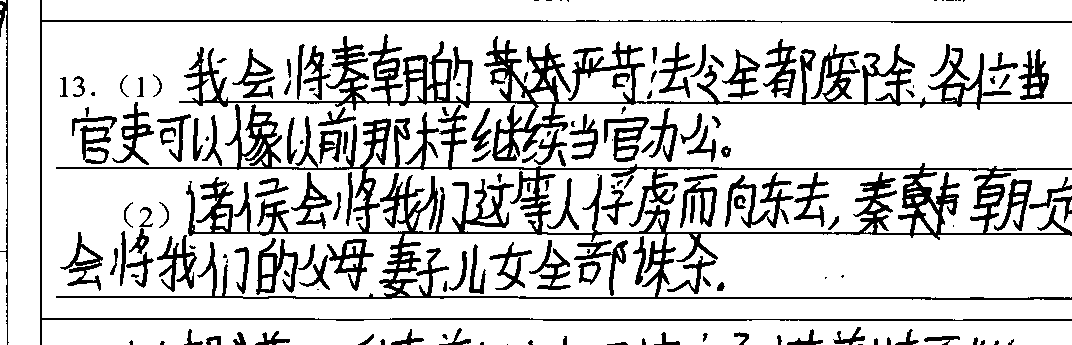 13.（1）我会将秦朝的严苛法令全都废除,各位当
官吏可以像以前那样继续当官办公。
（2）诸侯会将我们这等人俘虏而向东去,秦朝一定
会将我们的父母,妻子儿女全部诛杀.